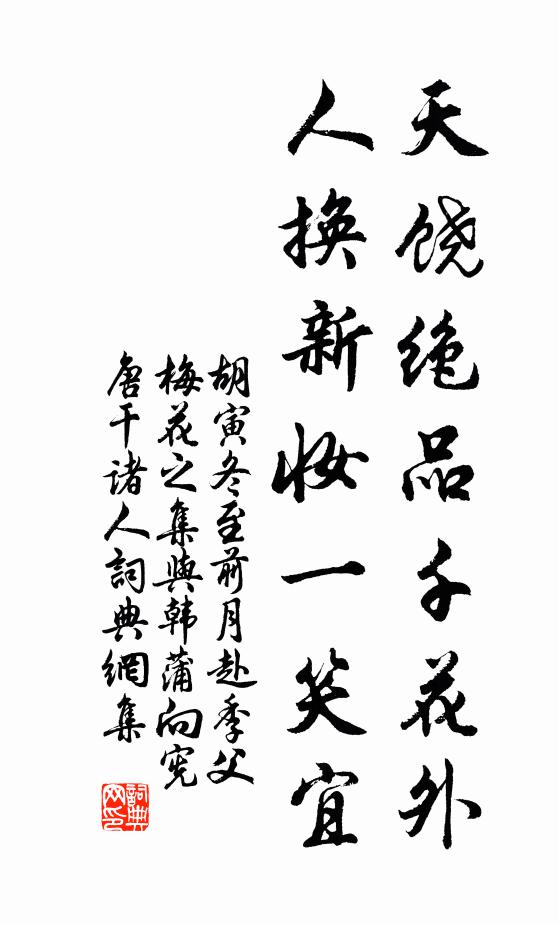 天饶绝品千花外
人换新妆一笑宜
胡寅冬至前月赴季父
梅花之集與韩蒲向宪
唐干诸人詞典網集
詞典网印